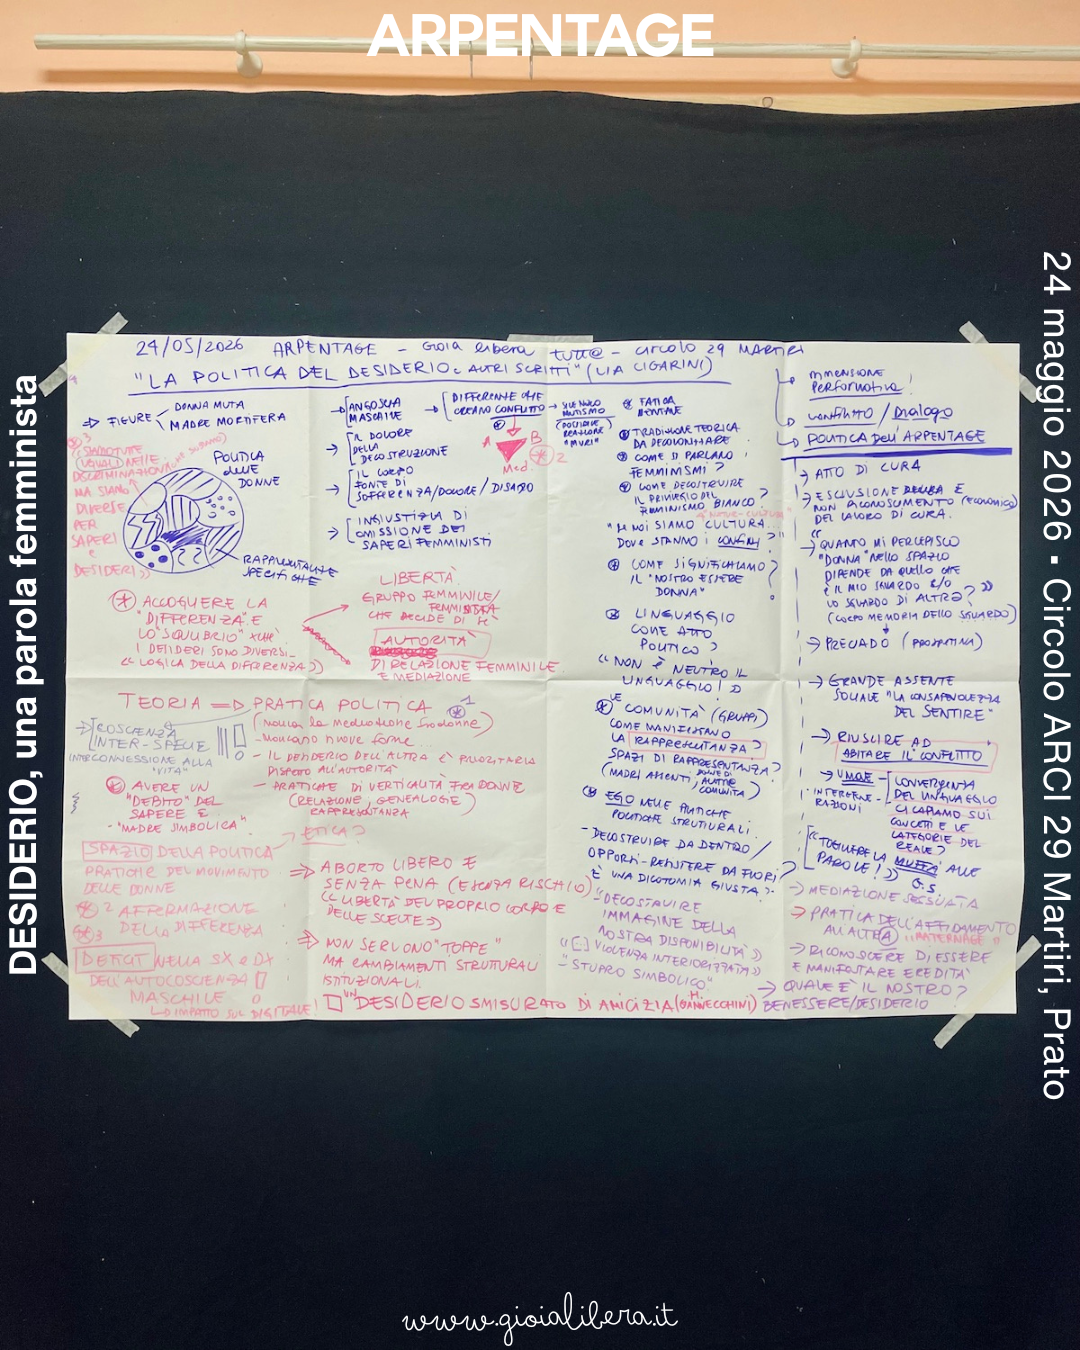 ARPENTAGE
DESIDERIO, una parola femminista
24 maggio 2026 • Circolo ARCI 29 Martiri, Prato
24/05/2026 ARPENTAGE - Gioia libera tutt@ - circolo 29 MARTIRI
"LA POLITICA DEL DESIDERIO e ALTRI SCRITTI" (LIA CIGARINI)
FIGURE
DONNA MUTA
MADRE MORTIFERA
NELLE
DISCRIMINAZIONI
MA SIAMO
DIVERSE
PER
SAPERI
E
DESIDERI >>
POLITICA
delle
DONNE
RAPPRESENTANZE
SPECIFICHE
* ACCOGLIERE LA
"DIFFERENZA" E
LO "SQUILIBRIO" XCHÉ
I DESIDERI SONO DIVERSI
(LOGICA DELLA DIFFERENZA)
→ ANGOSCIA
MASCHILE
→ IL DOLORE
DELLA
DECOSTRUZIONE
→ IL CORPO
FONTE DI
SOFFERENZA/DOLORE/DISAGIO
→ INGIUSTIZIA DI
OMISSIONE DEI
SAPERI FEMMINISTI
→ DIFFERENZE CHE
CREANO CONFLITTO
A
B
Med.
* 2
LIBERTÀ
GRUPPO FEMMINILE/
FEMMINISTA
CHE DECIDE DI
AUTORITÀ
DI RELAZIONE FEMMINILE
E MEDIAZIONE
TEORIA ⇒ PRATICA POLITICA
* 1
(manca la mediazione fra donne)
- mancano nuove forme...
- IL DESIDERIO DELL'ALTRA È PRIORITARIO
RISPETTO ALL'AUTORITÀ
- PRATICHE DI VERTICALITÀ FRA DONNE
(RELAZIONE, GENEALOGIE)
RAPPRESENTANZA
ETICA?
COSCIENZA
INTER-SPECIE
INTERCONNESSIONE ALLA
"VITA"
AVERE UN
"DEBITO" DEL
SAPERE E
- "MADRE SIMBOLICA"
SPAZIO DELLA POLITICA
PRATICHE DEL MOVIMENTO
DELLE DONNE
* 2 AFFERMAZIONE
DELLA DIFFERENZA
* 3
DEFICIT NELLA SX e DX
DELL'AUTOCOSCIENZA
MASCHILE
↳ IMPATTO SUL DIGITALE!
⇒ ABORTO LIBERO E
SENZA PENA (E SENZA RISCHIO)
<< LIBERTÀ DEL PROPRIO CORPO E
DELLE SCELTE >>
⇒ NON SERVONO "TOPPE"
MA CAMBIAMENTI STRUTTURALI
ISTITUZIONALI.
"UN DESIDERIO SMISURATO DI AMICIZIA
FATICA
TRADIZIONE TEORICA
DA DECOLONIZZARE
COME SI PARLANO I
FEMMINISMI?
COME DECOSTRUIRE
IL PRIVILEGIO DEL
FEMMINISMO BIANCO?
"MA NOI SIAMO CULTURA.
DOVE STANNO I CONFINI?"
COME SIGNIFICHIAMO
IL "NOSTRO ESSERE
DONNA"?
LINGUAGGIO
COME ATTO
POLITICO?
<< NON È NEUTRO IL
LINGUAGGIO! >>
LE
COMUNITÀ (GRUPPI)
COME MANIFESTANO
LA RAPPRESENTANZA?
SPAZI DI RAPPRESENTANZA?
COMUNITÀ)
EGO NELLE PRATICHE
POLITICHE STRUTTURALI.
- DECOSTRUIRE DA DENTRO/
OPPORSI - RESISTERE DA FUORI
È UNA DICOTOMIA GIUSTA?
- DECOSTRUIRE
IMMAGINE DELLA
NOSTRA DISPONIBILITÀ >>
<< [...] VIOLENZA INTERIORIZZATA >>
- "STUPRO SIMBOLICO"
DIMENSIONE
Performativa!
conflitto / Dialogo
POLITICA Dell'ARPENTAGE
→ ATTO DI CURA
→ ESCLUSIONE E
NON RICONOSCIMENTO (economico)
DEL LAVORO DI CURA.
→ QUANDO MI PERCEPISCO
"DONNA" NELLO SPAZIO
DIPENDE DA QUELLO CHE
È IL MIO SGUARDO E/O
LO SGUARDO DI ALTR@? >>
(CORPO MEMORIA DELLO SGUARDO)
→ PRECIADO
→ GRANDE ASSENTE
SOCIALE "LA CONSAPEVOLEZZA
DEL SENTIRE"
→ RIUSCIRE AD
ABITARE IL CONFLITTO
INTERGENE-
RAZIONI
CONVERGENZA
DEL LINGUAGGIO
CI CAPIAMO SUI
CONCETTI E LE
CATEGORIE DEL
REALE?
"TOGLIERE LA MUFFA ALLE
PAROLE!" >> G.S.
→ MEDIAZIONE SESSUATA
→ PRATICA DELL'AFFIDAMENTO
ALL'ALTRA
→ RICONOSCERE DI ESSERE
E MANIFESTARE EREDITÀ
→ QUALE È IL NOSTRO?
BENESSERE/DESIDERIO
www.gioialibera.it